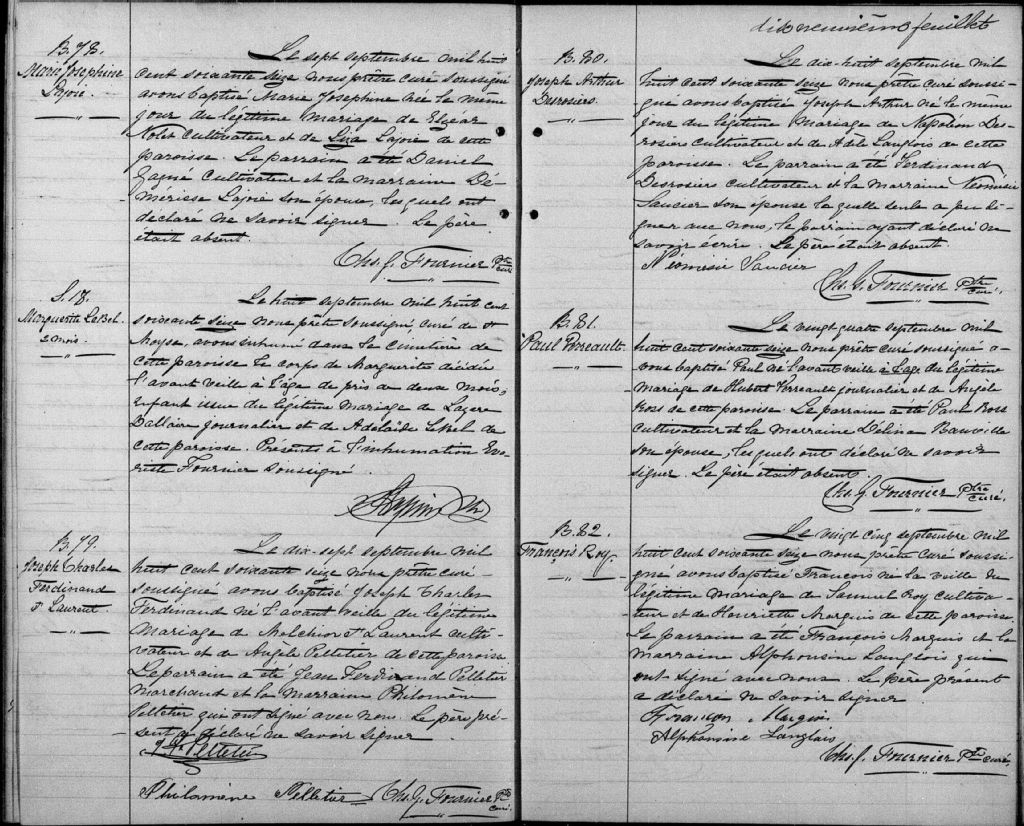 B. 78.
Marie Josephine
Lajoie.
Le sept septembre mil huit
cent soixante seize nous prêtre curé soussigné
avons baptisé Marie Josephine née le même
jour du legitime mariage de Elzear
Cultivateur et de Liza Lajoie de cette
paroisse. Le parrain a été Daniel
Gagné Cultivateur et la marraine Dé-
mérisse Lajoie son épouse, lesquels ont
declaré ne savoir signer. Le père
était absent.
Chs. G. Fournier Ptre
curé
S. 18.
Marguerite LeBel.
2 mois.
Le huit septembre mil huit cent
soixante seize nous prêtre soussigné, curé de St
Moyse, avons inhumé dans le cimetière de
cette paroisse le corps de Marguerite décédée
l'avant veille à l'âge de près de deux mois
Enfant issue du légitime mariage de Lazare
Dallaire journalier et de Adelaide LeBel de
cette paroisse. Présents à l'inhumation
Fournier soussigné
B. 79.
Joseph Charles
Ferdinand
St Laurent
Le dix-sept septembre mil
huit cent soixante seize nous prêtre curé
soussigné avons baptisé Joseph Charles
Ferdinand né l'avant veille du légitime
Mariage de Melchior St Laurent culti-
vateur et de Angèle Pelletier de cette paroisse
Le parrain a été Jean Ferdinand Pelletier
Marchand et la Marraine Philomène
Pelletier qui ont signé avec nous. Le père pré-
sent a déclaré ne savoir signer
J. F. Pelletier
Philomène Pelletier Chs. G. Fournier Ptre
curé.
dix neuvième feuillet
B. 80.
Joseph Arthur
Desrosiers.
Le dix-huit septembre mil
huit cent soixante seize nous prêtre curé soussi-
gné avons baptisé Joseph Arthur né le même
jour du légitime Mariage de Napoléon Des-
rosiers cultivateur et de Adèle Langlois de cette
paroisse. Le parrain a été Ferdinand
Desrosiers cultivateur et la marraine Néomésie
Saucier son épouse laquelle seule a pu si-
gner avec nous, le parrain ayant déclaré ne
savoir écrire. Le père était absent
Néomésie Saucier
Chs. G. Fournier Ptre
curé.
B. 81.
Paul Perreault.
Le vingt quatre septembre mil
huit cent soixante seize nous prêtre curé soussigné a-
vons baptisé Paul né l'avant veille du légitime
mariage de Hubert Perreault journalier et de Angèle
Ross de cette paroisse. Le parrain a été Paul Ross
Cultivateur et la Marraine Délina Banville
son épouse, lesquels ont déclaré ne savoir
signer. Le père était absent.
Chs. G. Fournier Ptre
curé.
B. 82.
François Roy.
Le vingt cinq septembre mil
huit cent soixante seize nous prêtre curé soussi-
gné avons baptisé François né la veille du
légitime mariage de Samuel Roy Cultiva-
teur et de Henriette Marquis de cette paroisse.
Le parrain a été François Marquis et la
marraine Alphonsine Langlois qui
ont signé avec nous. Le père présent
a déclaré ne savoir signer
François Marquis
Alphonsine Langlais
Chs. G. Fournier Ptre
curé.